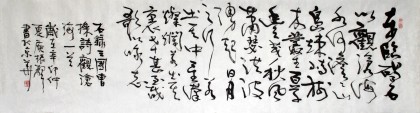 東臨碣石
以觀滄海
水何澹澹山
島竦峙樹
木叢生百草
豐茂秋風
蕭瑟洪波
湧起日月
之行若
出其中星漢
燦爛若出其
裏幸甚至哉
歌以詠志
三國曹
操詩觀滄
海一首
辛卯仲
夏
書於京華